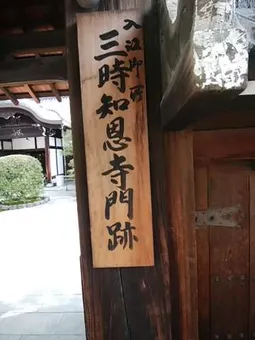 入江御所
三時知恩寺門跡